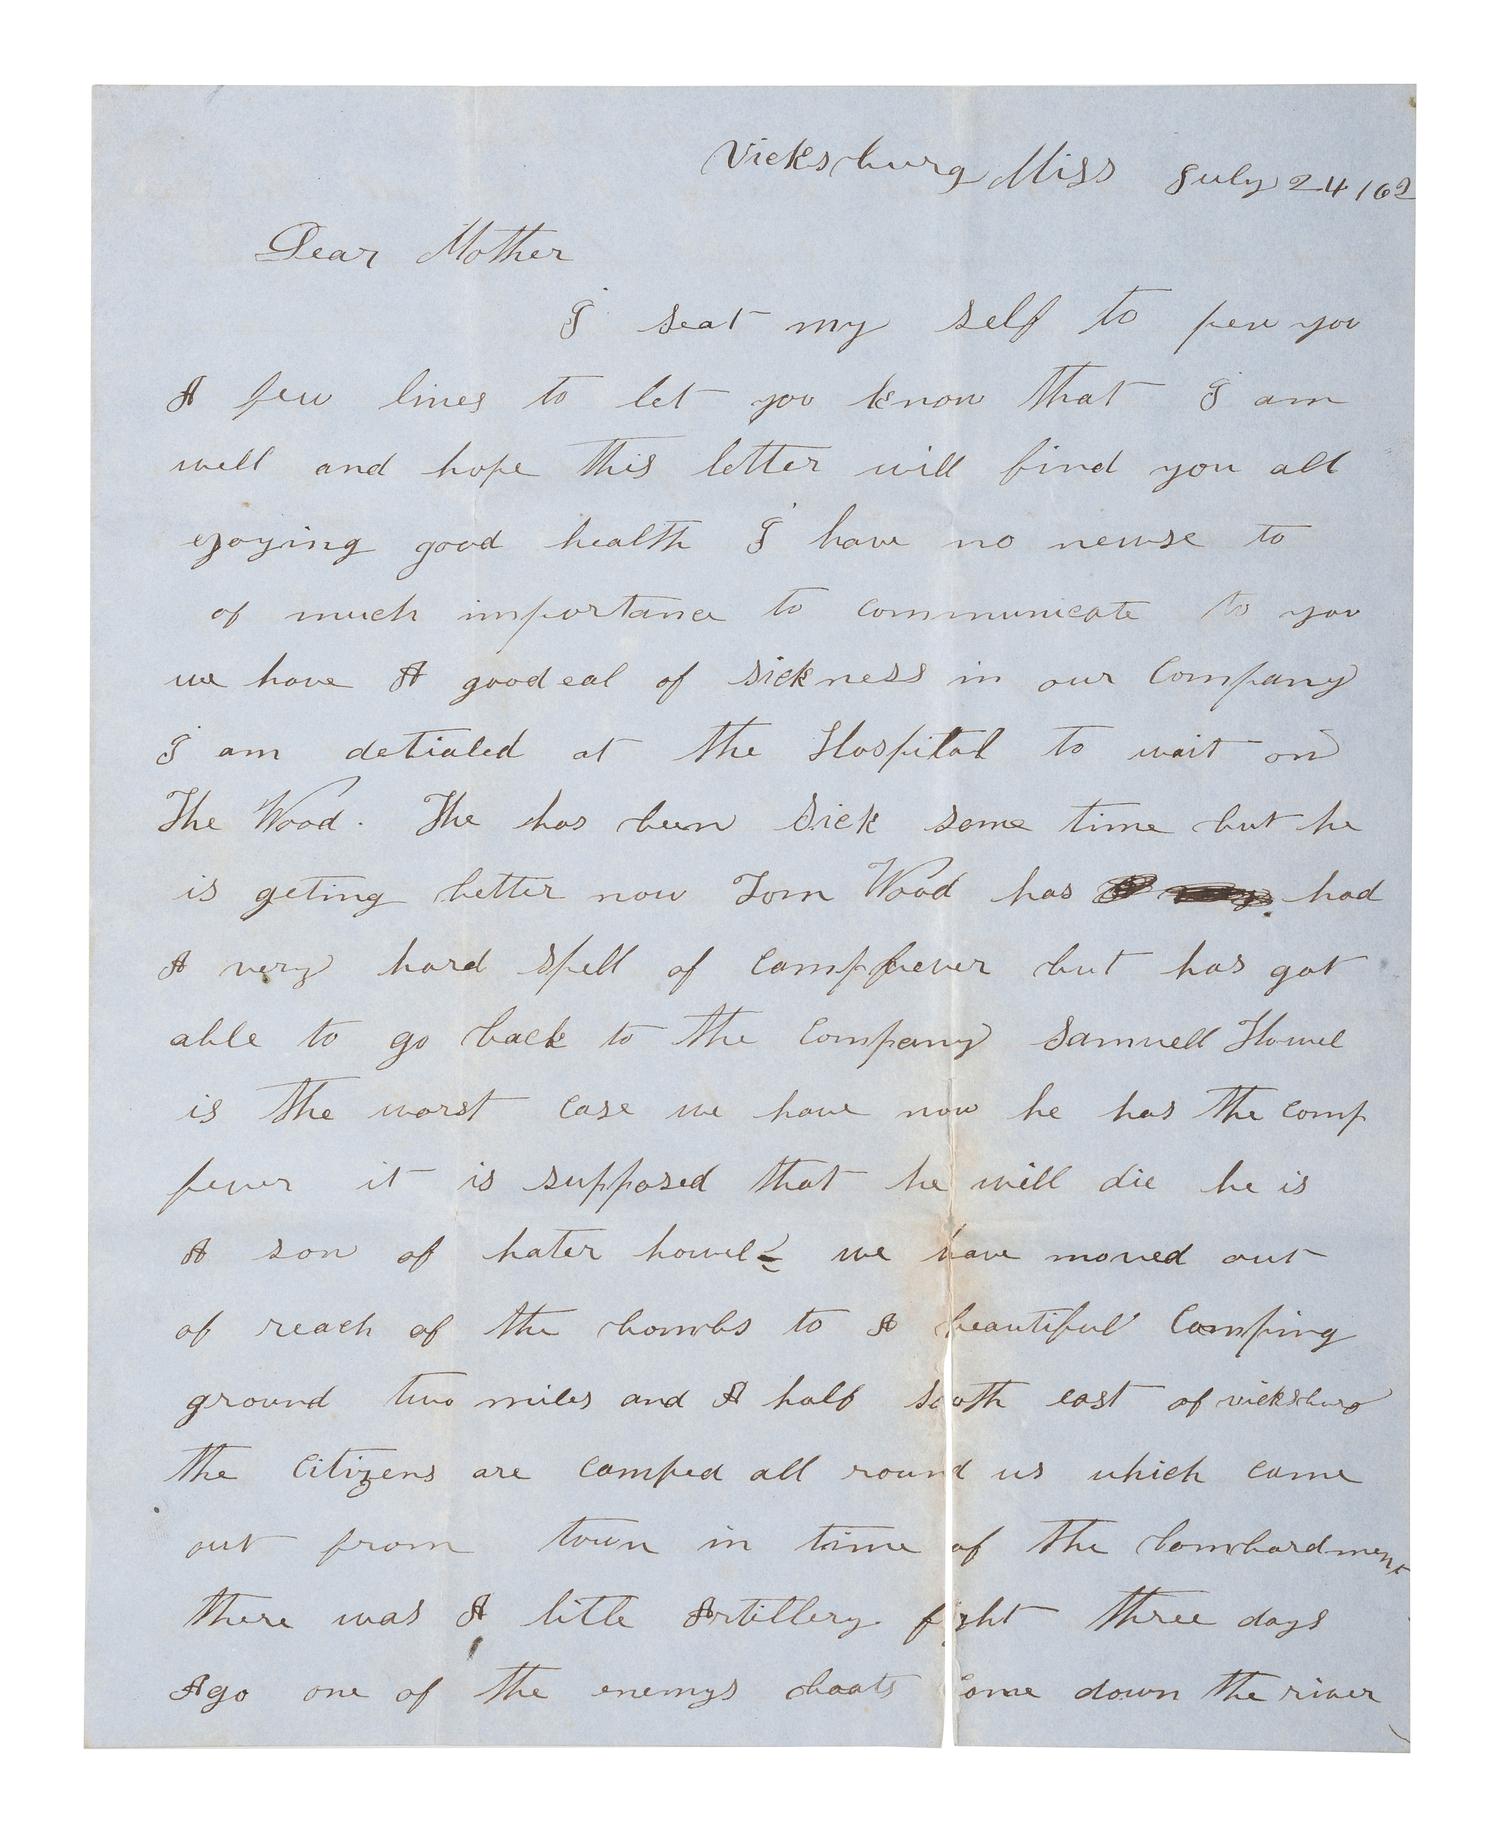 Vicksburg Miss July 24 / 62
Dear Mother
I seat my self to pen you
A few lines to let you know that I am
well and hope this letter will find you all
ejoying good health I have no newse to
of much importance to communicate to you
we have A goodeal of sickness in our Company
I am detialed at the Hospital to wait on
The Wood. The has been sick some time but he
is geting better now Tom Wood has had
A very hard spell of camp fever but has got
able to go back to the Company Samuell Howel
is the worst case we have now he has the camp
fever it is supposed that he will die he is
A son of hater howel we have moved out
of reach of the bombs to A beautiful Camping
ground two miles and A half south east of vicksburg
the Citizens are camped all round us which came
out from town in time of the bombardment
there was A litle Artillery fight three days
Ago one of the enemys boats come down the river